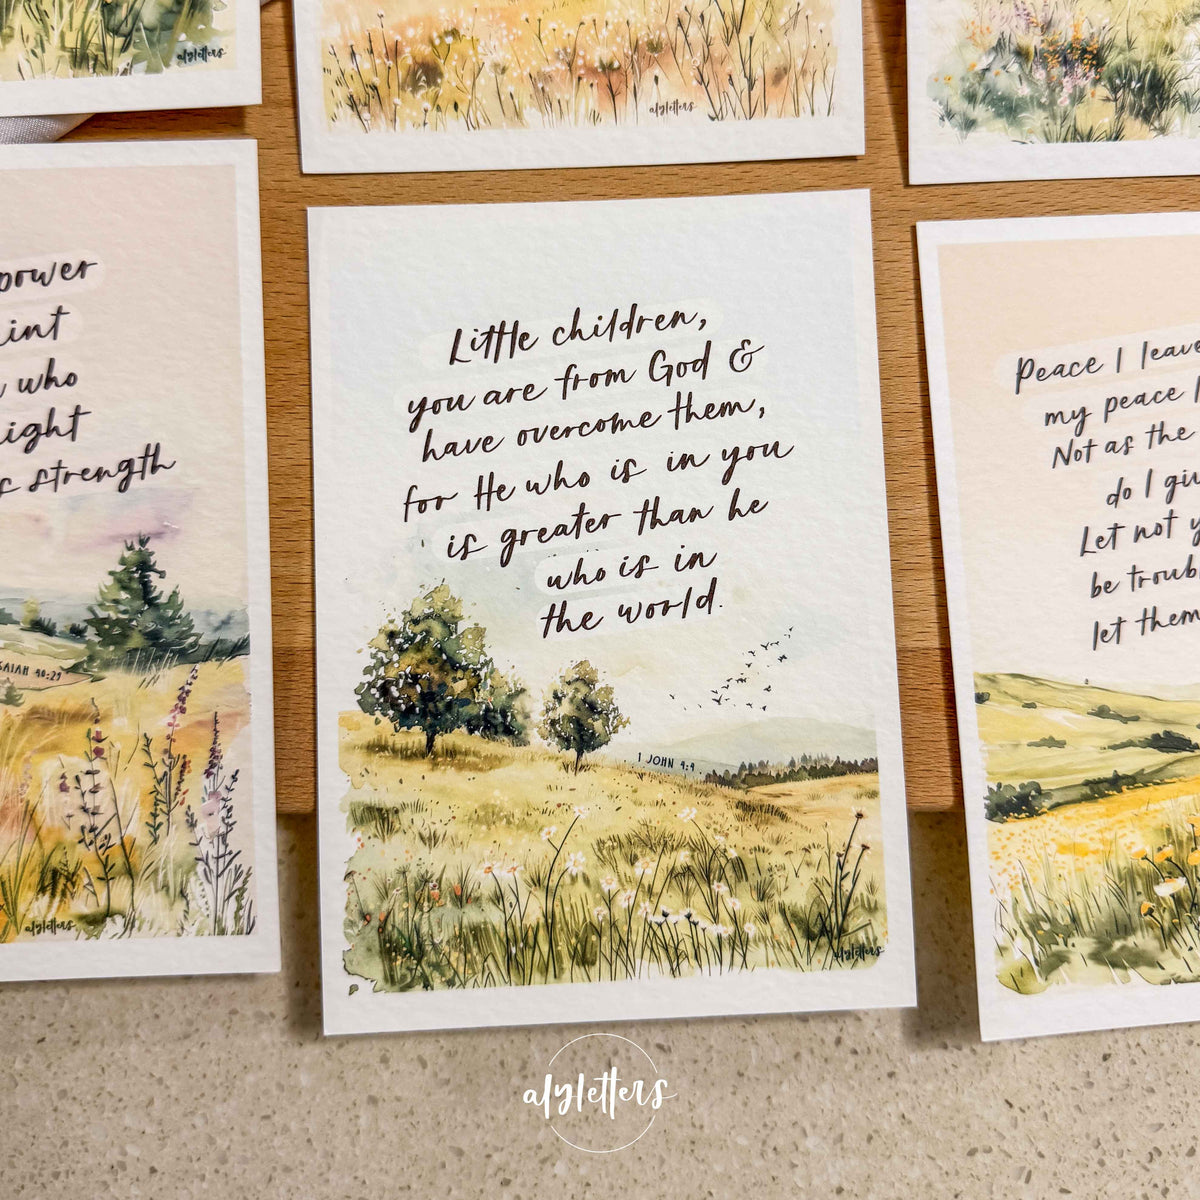 alyletters
alyletters
power
who
strength
ISAIAH 40:29
alyletters
Little children,
you are from God &
have overcome them,
for He who is in you
is greater than he
who is in
the world.
1 JOHN 4:4
alyletters
Peace I leave
my peace I
Not as the
do I
Let not
be
let them
alyletters